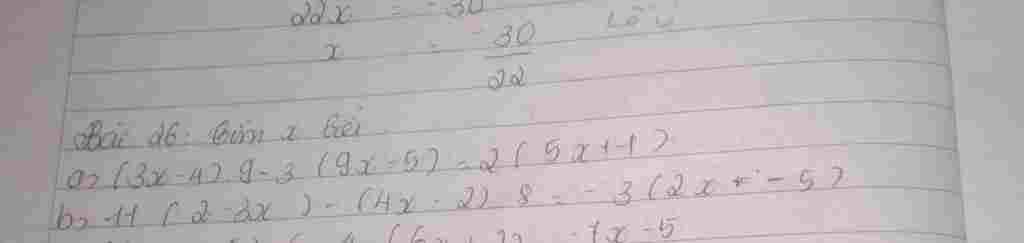 22x = -30
x = -30/22
Bài 26: Tìm x biết
a, (3x-4).9-3(9x-5)=2(5x+-1)
b, -11(2-3x)-(4x-2).8=-3(2x+-5)
-7x-5